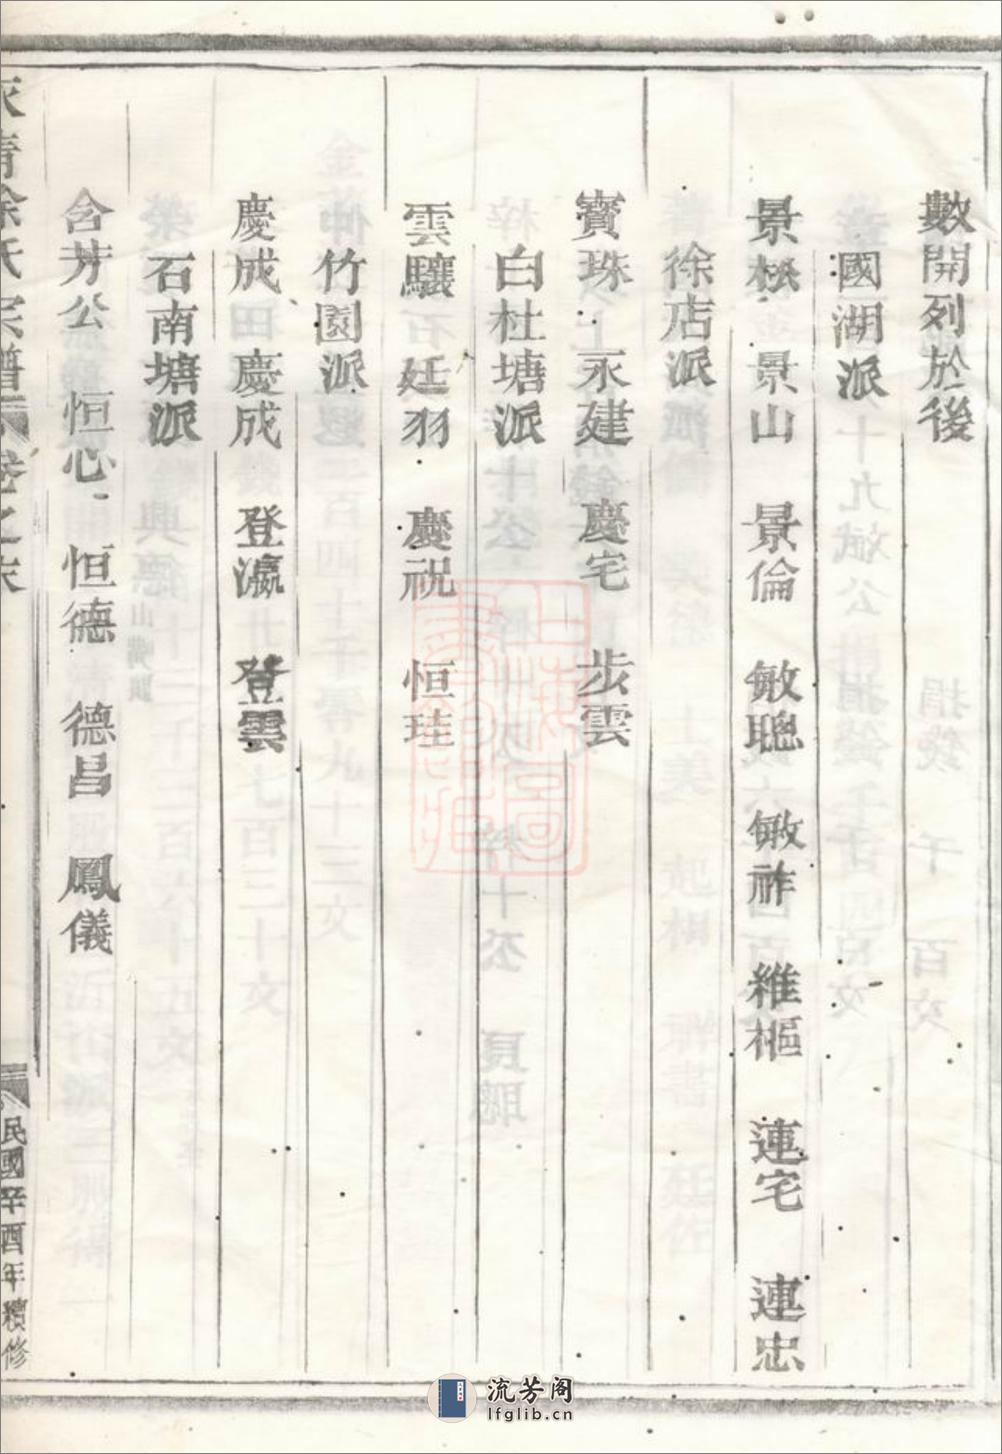 數開列於後
國湖派
景松 景山 景倫 敏聰 敏祚 維樞 連宅 連忠
徐店派
寶珠 永建 慶宅 步雲
白杜塘派
雲驤 廷羽 慶祝 恒珪
竹園派
慶成 慶成 登瀛 登雲
石南塘派
含芳公 恒心 恒德 德昌 鳳儀
徐氏宗譜 卷之末
民國辛酉年續修
流芳阁
lfglib.cn